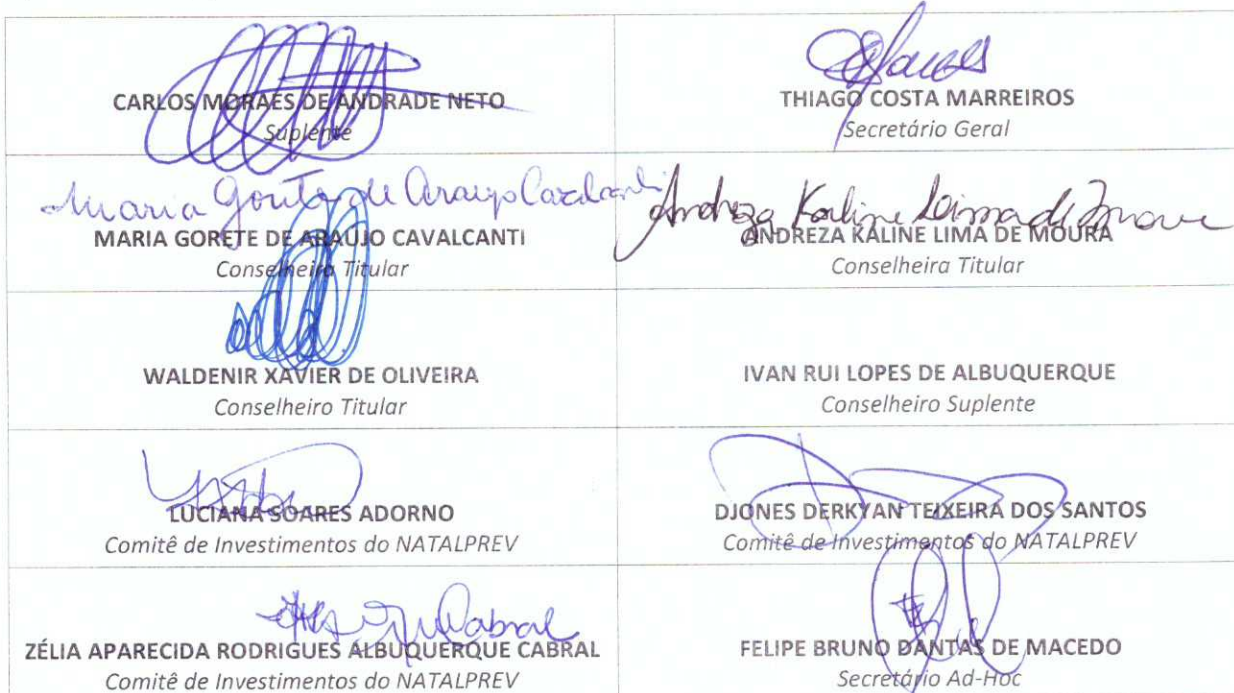 CARLOS MORAES DE ANDRADE NETO
Suplente
THIAGO COSTA MARREIROS
Secretário Geral
Maria Gorete de Araujo Cavalcanti
MARIA GORETE DE ARAÚJO CAVALCANTI
Conselheira Titular
Andreza Kaline Lima de Moura
ANDREZA KALINE LIMA DE MOURA
Conselheira Titular
WALDENIR XAVIER DE OLIVEIRA
Conselheiro Titular
IVAN RUI LOPES DE ALBUQUERQUE
Conselheiro Suplente
LUCIANA SOARES ADORNO
Comitê de Investimentos do NATALPREV
DJONES DERKYAN TEIXEIRA DOS SANTOS
Comitê de Investimentos do NATALPREV
Cabral
ZÉLIA APARECIDA RODRIGUES ALBUQUERQUE CABRAL
Comitê de Investimentos do NATALPREV
FELIPE BRUNO DANTAS DE MACEDO
Secretário Ad-Hoc